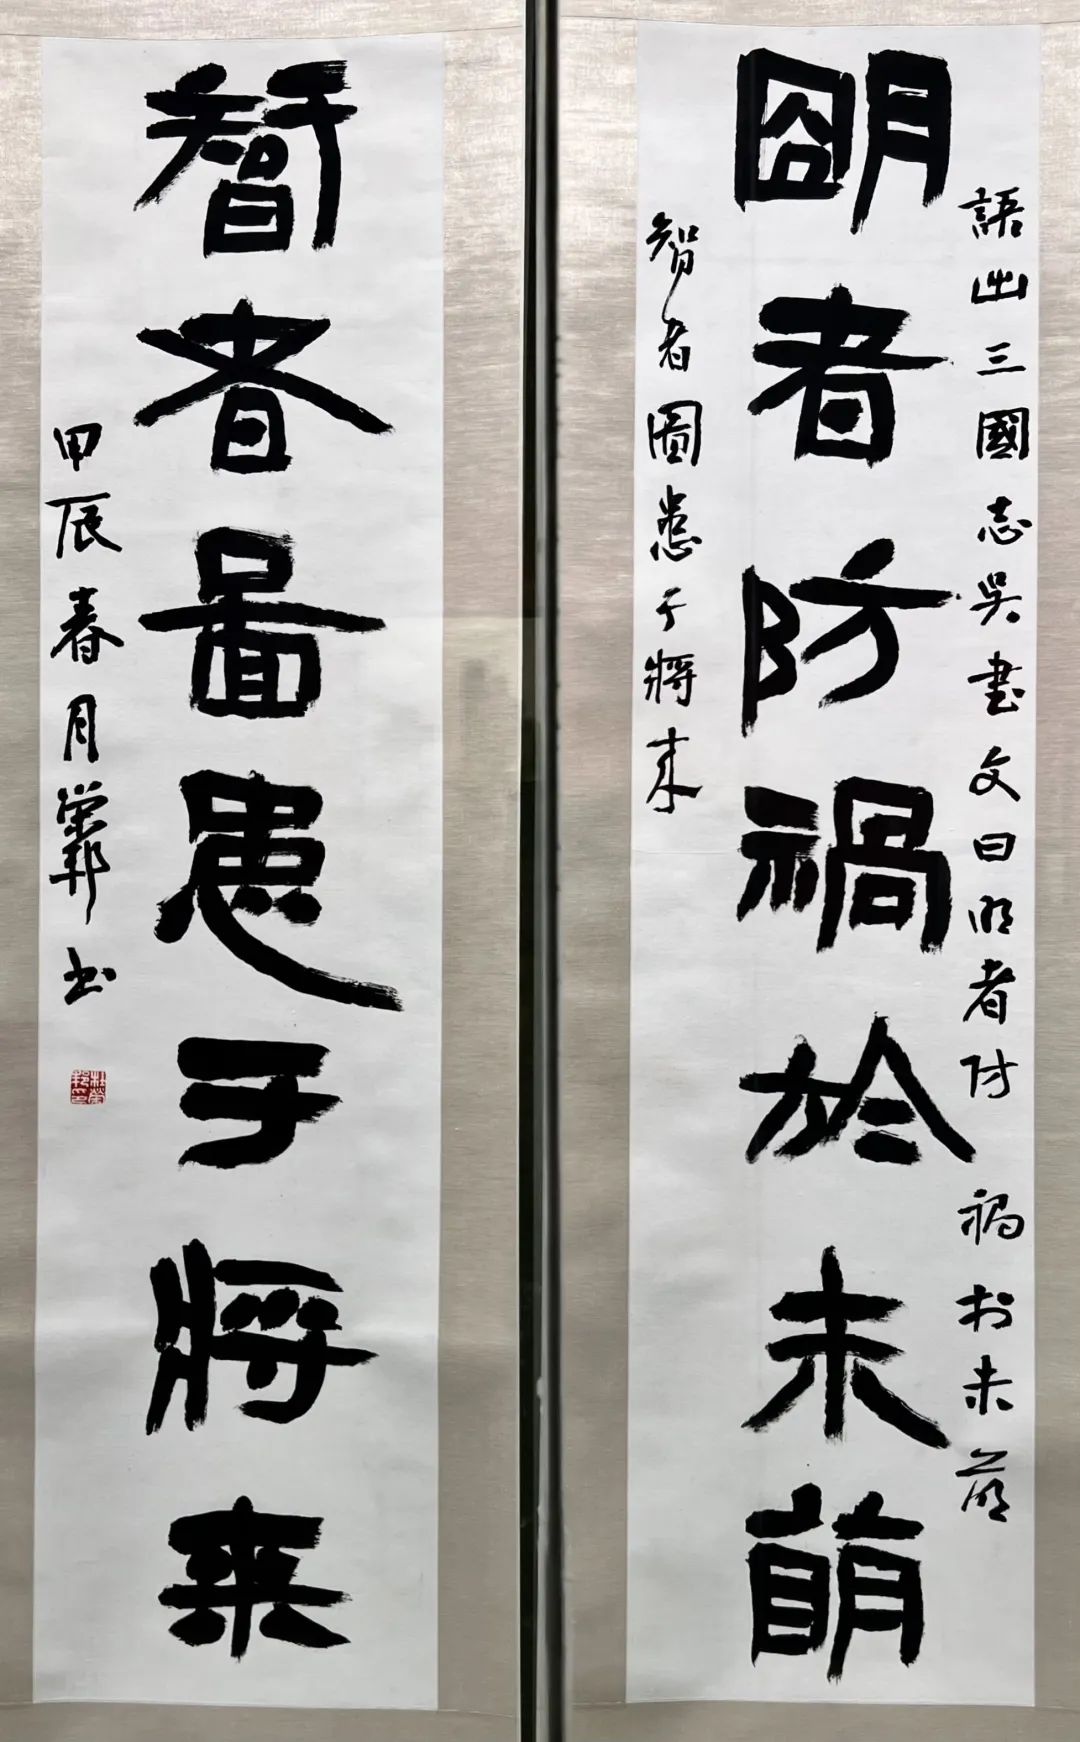 明者防禍於未萌
語出三國志吳書文曰明者防禍於未萌
智者圖患于將來
智者圖患于將來
甲辰春月榮邦书
杜榮邦印